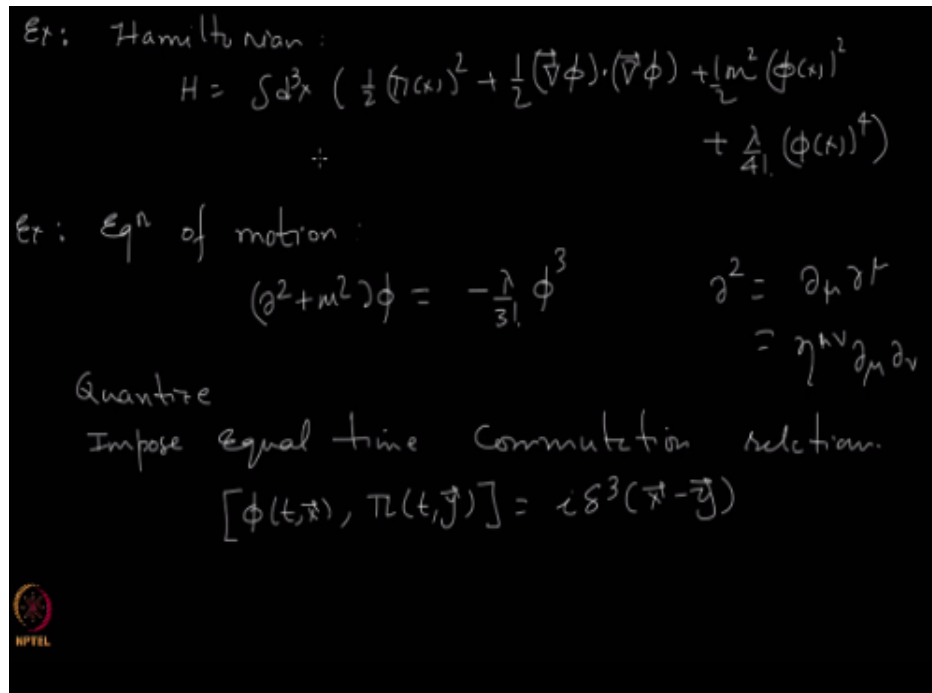 Ex: Hamiltonian:
H = ∫d³x ( ½ (π(x))² + ½ (∇⃗φ)·(∇⃗φ) + ½ m² (φ(x))²
+ λ/4! (φ(x))⁴)
Ex: Eqⁿ of motion:
(∂²+m²)φ = -λ/3! φ³ ∂² = ∂_μ ∂^μ
= η^{μν} ∂_μ ∂_ν
Quantize
Impose Equal time Commutation relation.
[φ(t,x⃗), π(t,y⃗)] = iδ³(x⃗-y⃗)
NPTEL